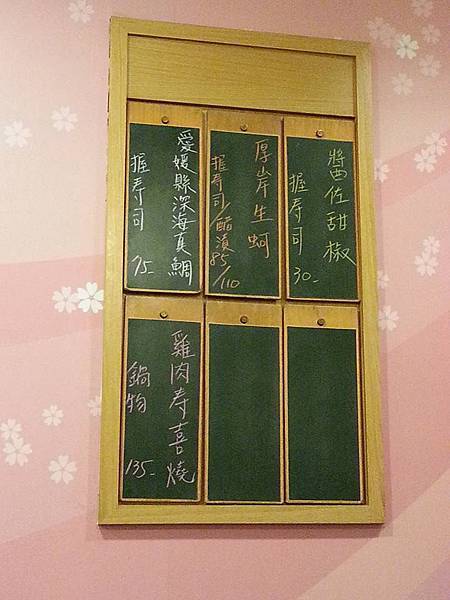 醬佐甜椒
握壽司 30-
厚岸生蚵
握寿司/醋漬
85/110
愛媛縣深海真鯛
握寿司 75-
雞肉寿喜燒
鍋物 135-